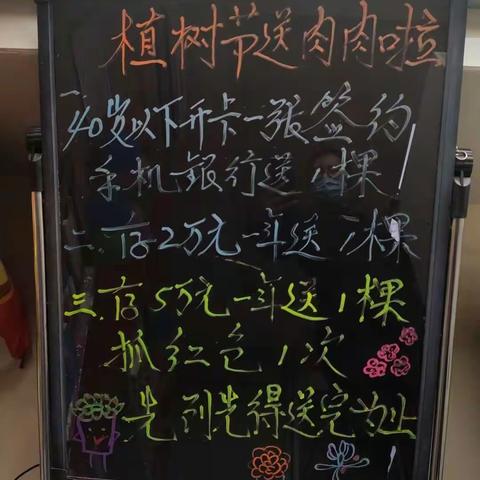 植树节送肉肉啦
一、40岁以下开卡一张签约
手机银行送1棵!
二、存2万元一年送1棵
三、存5万元一年送1棵
抓红包1次
先到先得送完为止!